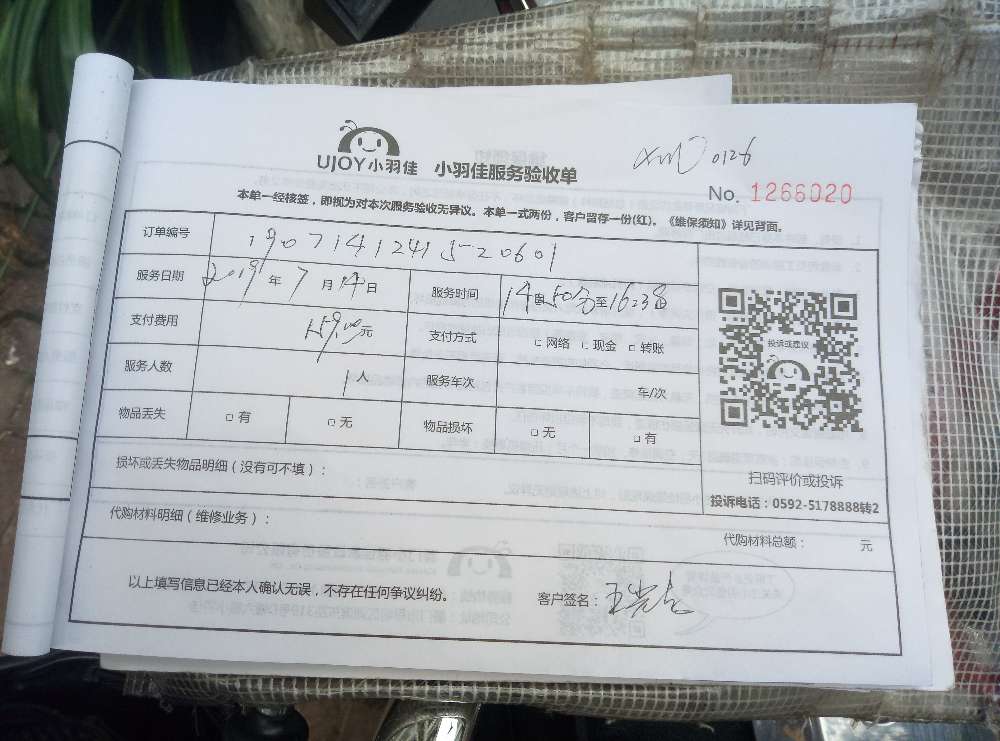 UJOY小羽佳 小羽佳服务验收单
0126
No. 1266020
本单一经核签，即视为对本次服务验收无异议。本单一式两份，客户留存一份(红)。《维保须知》详见背面。
订单编号 19071412415-20601
服务日期 2019年7月14日 服务时间 14时50分至16:23分
支付费用 159.00元 支付方式 □网络 □现金 □转账
服务人数 1人 服务车次 车/次
物品丢失 □有 □无 物品损坏 □无 □有
投诉或建议
扫码评价或投诉
投诉电话：0592-5178888转2
损坏或丢失物品明细（没有可不填）：
代购材料明细（维修业务）： 代购材料总额： 元
以上填写信息已经本人确认无误，不存在任何争议纠纷。 客户签名：